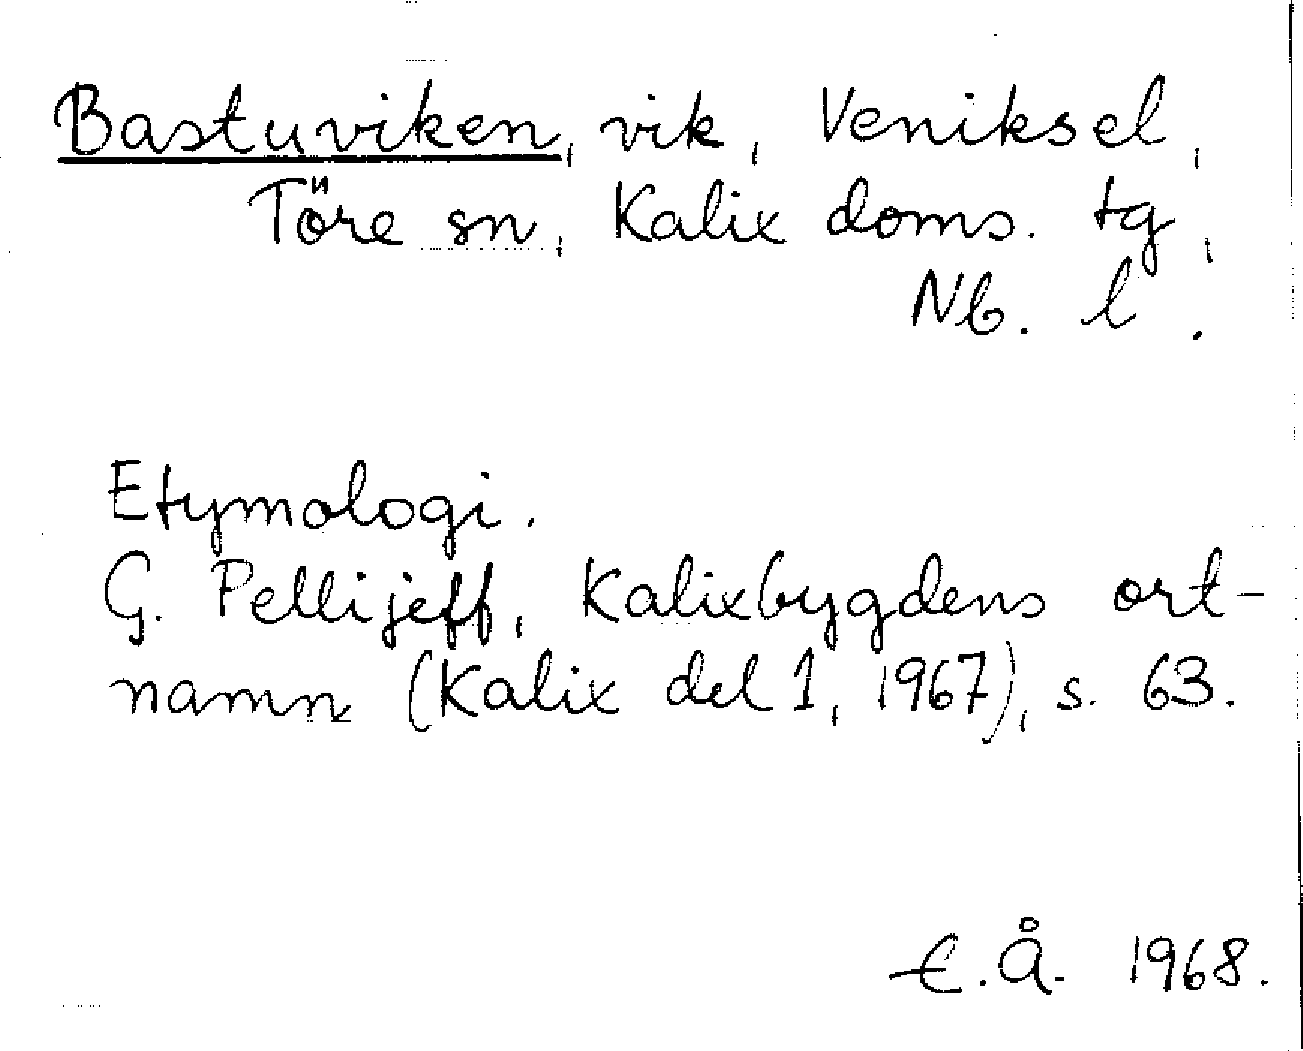 Bastuviken, vik, Veniksel,
Töre sn, Kalix doms. tg,
Nb. l.
Etymologi.
G. Pellijeff, Kalixbygdens ort-
namn (Kalix del 1, 1967), s. 63.
E.Å. 1968.